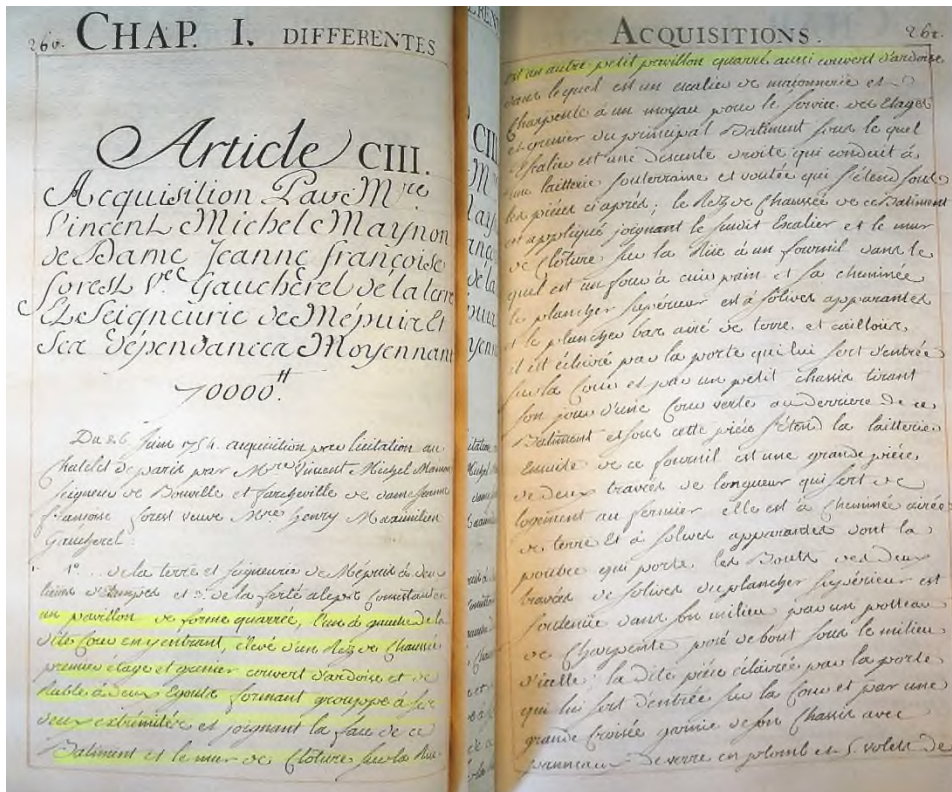 260. CHAP. I. DIFFERENTES
Article CIII.
Acquisition Par M.re
Vincent Michel Maynon
de Dame Jeanne françoise
forest V.e Gaucherel de la terre
Et Seigneurie de Mépuis Et
Ses dépendances Moyennant
70000.tt
Du 26 Juin 1754. acquisition par licitation au
Chatelet de paris par M.re Vincent Michel Maynon
seigneur de Bouville et farcheville de dame Jeanne
françoise forest veuve M.re henry Maximilien
Gaucherel.
1.o de la terre et seigneurie de Mépuis à deux
lieües d'Etampes et de la ferté alepes consistant en
un pavillon de forme quarrée, l'un à gauche de la
dite Cour en y entrant, élevé d'un Rez de Chaussée
premier étage et grenier couvert d'ardoise et de
thuile à deux Egouts formant grouppe à ses
deux extrémités et joignant la face de ce
Batiment et le mur de Clôture sur la Rue
ACQUISITIONS. 261.
est un autre petit pavillon quarré aussi couvert d'ardoise
dans lequel est un escalier de maçonnerie et
Charpente à un noyau pour le service des Etages
et grenier du principal Batiment sous le quel
Escalier est une descente droite qui conduit à
une laitterie souterraine et voutée qui s'étend sous
les pièces ci après; le Rez de Chaussée de ce Batiment
est appliqué joignant le susdit Escalier et le mur
de Clôture sur la Rue à un fournil dans le
quel est un four à cuire pain et sa cheminée
le plancher supérieur est à solives apparantes
et le plancher bas airé de terre et cailloux
il est éclairé par la porte qui lui sert d'entrée
sur la Cour et par un petit chassis tirant
son jour d'une Cour verte au derriere de ce
Batiment et sous cette pièce s'étend la laitterie
Ensuite de ce fournil est une grande pièce
de deux travées de longueur qui sert de
logement au fermier elle est à Cheminée airée
de terre et à solives apparantes dont la
poutre qui porte les Bouts des deux
travées de solives du plancher supérieur est
soutenüe dans son milieu par un potteau
de Charpente posé debout sous le milieu
d'icelle: la dite pièce éclairée par la porte
qui lui sert d'entrée sur la Cour et par une
grande Croisée garnie de son Chassis avec
panneaux de verre en plomb et 5 volets de